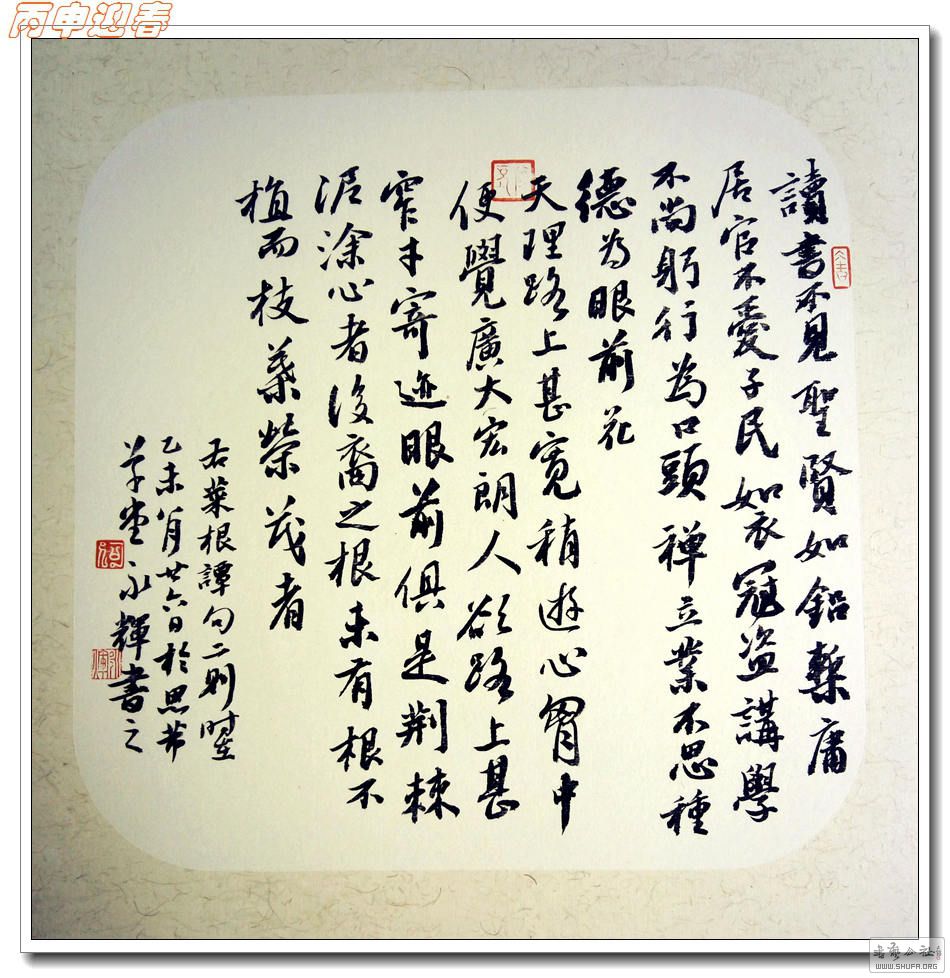 丙申迎春
讀書不見聖賢如鉛槧庸
居官不愛子民如衣冠盜講學
不尚躬行為口頭禪立業不思種
德為眼前花
天理路上甚寬稍遊心胃中
便覺廣大宏朗人欲路上甚
窄才寄迹眼前俱是荆棘
泥涂心者後裔之根未有根不
植而枝葉榮茂者
右菜根譚句二則時
乙未八月廿六日於思芾
草堂永輝書之
WWW.SHUFA.ORG